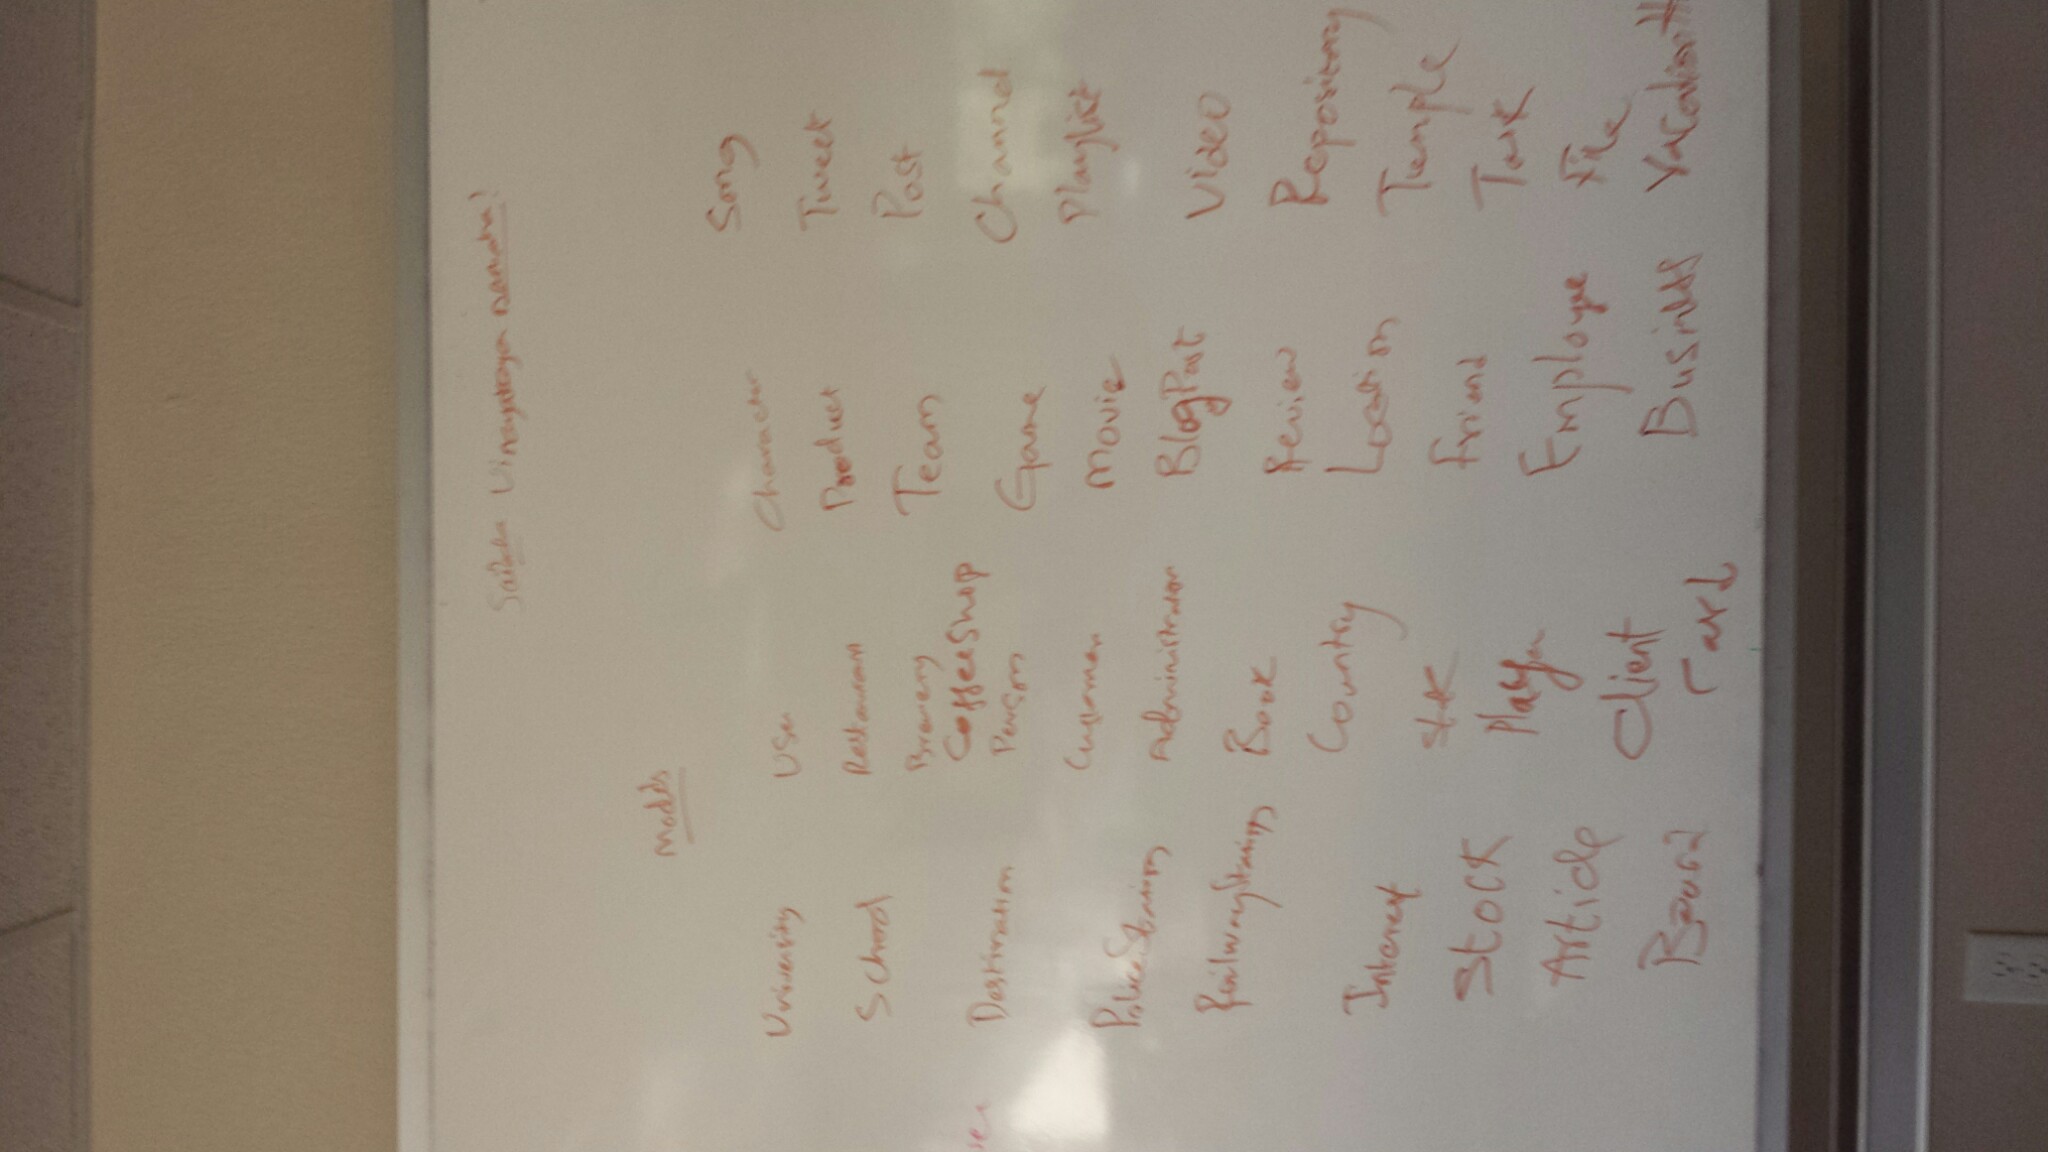 Vinayakaya namaha!
Models
University
School
Destination
PoliceStation
RailwayStation
Interest
Stock
Article
Board
User
Restaurant
Brewery
CoffeeShop
Person
Customer
Administrator
Book
Country
Player
Client
Card
Character
Product
Team
Game
Movie
BlogPost
Review
Location
Friend
Employee
Business
Song
Tweet
Post
Channel
Playlist
Video
Repository
Temple
Task
File